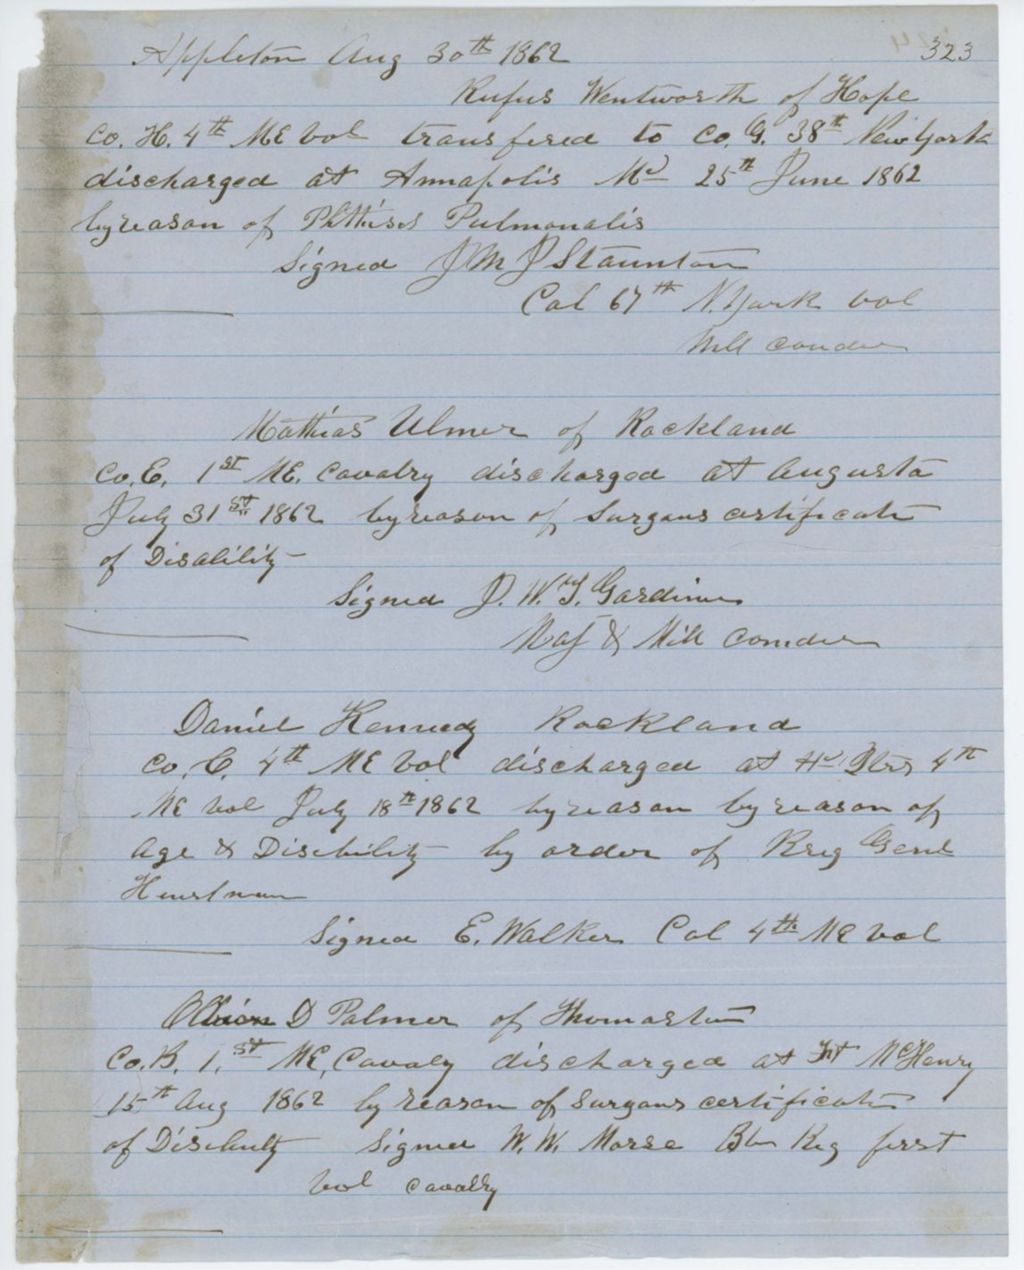 Appleton Aug 30th 1862 323
Rufus Wentworth of Hope
Co. H. 4th ME Vol transfered to Co. G. 38th New York
discharged at Annapolis Md 25th June 1862
by reason of Phthisis Pulmonalis
Signed J M J Staunton
Col 67th N. York Vol
Mil Comder
Mathias Ulmer of Rockland
Co. E. 1st ME. Cavalry discharged at Augusta
July 31st 1862 by reason of Surgans certificate
of Disability
Signed J. W. T. Gardiner
Maj & Mill Comder
Daniel Kennedy Rockland
Co. C. 4th ME Vol discharged at Hd Qtrs 4th
ME Vol July 18th 1862 by reason by reason of
Age & Disability by order of Breg Genl
Signed E. Walker Col 4th ME Vol
D Palmer of Thomaston
Co. B. 1.st ME, Cavaly discharged at Ft McHenry
15th Aug 1862 by reason of Surgans certificate
of Disability Signed W. W. Morse Reg first
Vol cavalry